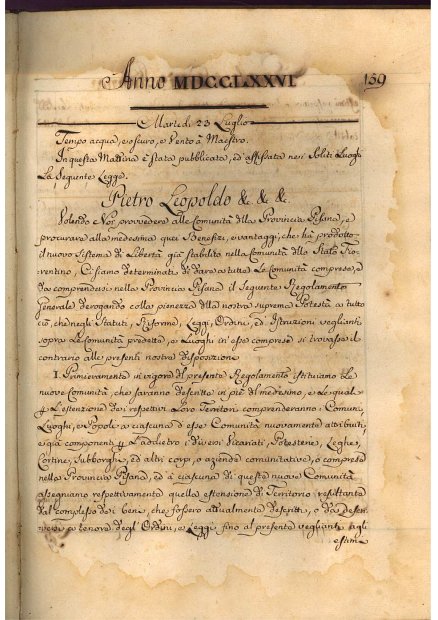 Anno MDCCLXXVI.
159
Martedì 23 Luglio
Tempo acqua, e oscuro, e Vento à Maestro.
In questa Mattina è stata pubblicata, ed affissata nei Soliti Luoghi
La Seguente Legge.
Pietro Leopoldo &. &. &.
Volendo Noi provvedere alle Comunità della Provincia Pisana, e
procurare alla medesima quei Benefizi, e vantaggi, che hà prodotto
il nuovo Sistema di Libertà già stabilito nella Comunità dello Stato Fio-
rentino, Ci siamo determinati di dare a tutte Le Comunità comprese, e
da comprendersi nella Provincia Pisana il seguente Regolamento
Generale derogando colla pienezza della nostra suprema Potestà a tutto
ciò, che negli Statuti, Riforme, Leggi, Ordini, ed Istruzioni veglianti
sopra Le Comunità predette, e Luoghi in esse compresi si trovasse il
contrario alle presenti nostre disposizioni
I. Primieramente in vigore del presente Regolamento istituiamo Le
nuove Comunità, che saranno descritte in piè del medesimo, e Le quali
p L'estenzione dei respettivi Loro Territori comprenderanno i Comuni,
Luoghi, e Popoli a ciascuna d'esse Comunità nuovamente attribuiti,
e già componenti p L'addietro i diversi Vicariati, Potesterie, Leghe,
Cortine, Subborghi, ed altri corpi, o aziende comunitative, o comprese
nella Provincia Pisana, ed a ciascuna di queste nuove Comunità
assegniamo respettivamente quella estensione di Territorio resultante
dal complesso dei beni, che fossero attualmente descritti, o da descri-
versi a tenore degl' Ordini, e Leggi fino al presente veglianti agli
estimi